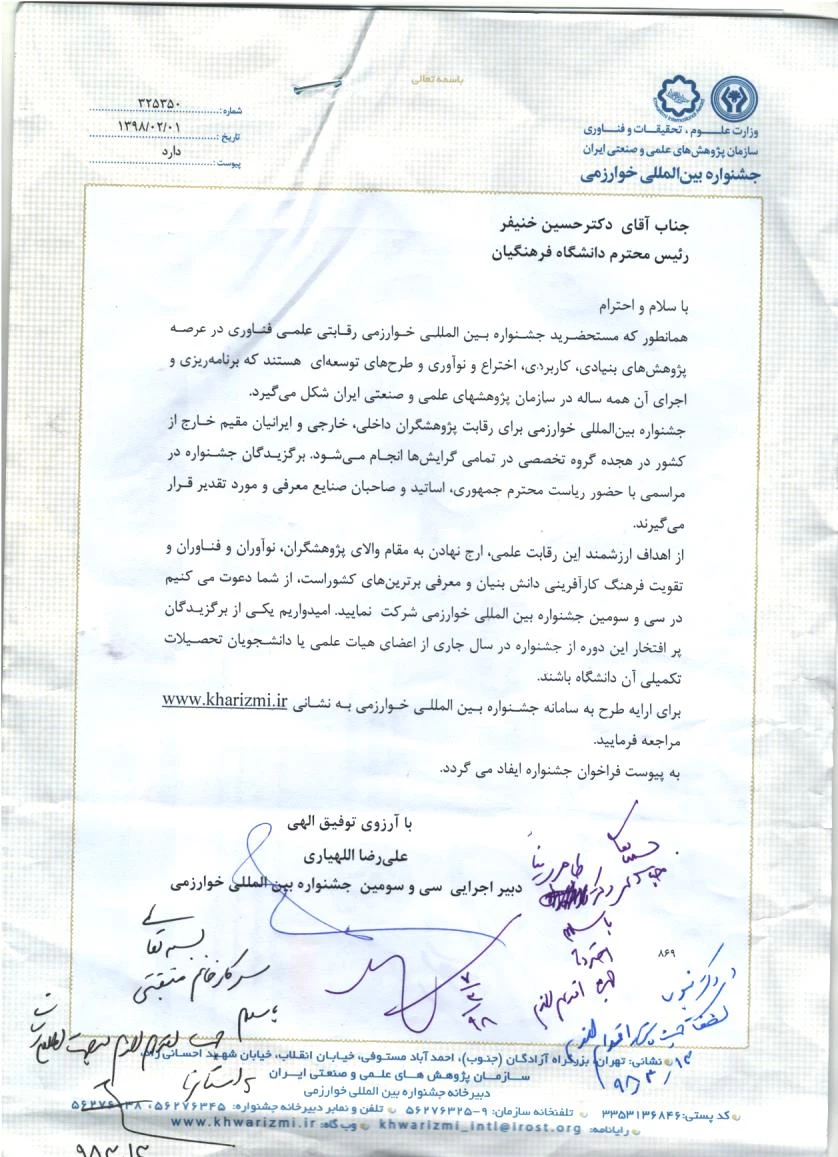 باسمه تعالی
وزارت علوم، تحقیقات و فناوری
سازمان پژوهش های علمی و صنعتی ایران
جشنواره بین‌المللی خوارزمی
شماره: ۳۲۵۳۵۰
تاریخ: ۱۳۹۸/۰۲/۰۱
پیوست: دارد
جناب آقای دکترحسین خنیفر
رئیس محترم دانشگاه فرهنگیان
با سلام و احترام
همانطور که مستحضرید جشنواره بین المللی خوارزمی رقابتی علمی فناوری در عرصه
پژوهش‌های بنیادی، کاربردی، اختراع و نوآوری و طرح‌های توسعه‌ای هستند که برنامه‌ریزی و
اجرای آن همه ساله در سازمان پژوهشهای علمی و صنعتی ایران شکل می‌گیرد.
جشنواره بین‌المللی خوارزمی برای رقابت پژوهشگران داخلی، خارجی و ایرانیان مقیم خارج از
کشور در هجده گروه تخصصی در تمامی گرایش‌ها انجام می‌شود. برگزیدگان جشنواره در
مراسمی با حضور ریاست محترم جمهوری، اساتید و صاحبان صنایع معرفی و مورد تقدیر قرار
می‌گیرند.
از اهداف ارزشمند این رقابت علمی، ارج نهادن به مقام والای پژوهشگران، نوآوران و فناوران و
تقویت فرهنگ کارآفرینی دانش بنیان و معرفی برترین‌های کشوراست، از شما دعوت می کنیم
در سی و سومین جشنواره بین المللی خوارزمی شرکت نمایید. امیدواریم یکی از برگزیدگان
پر افتخار این دوره از جشنواره در سال جاری از اعضای هیات علمی یا دانشجویان تحصیلات
تکمیلی آن دانشگاه باشند.
برای ارایه طرح به سامانه جشنواره بین المللی خوارزمی به نشانی www.kharizmi.ir
مراجعه فرمایید.
به پیوست فراخوان جشنواره ایفاد می گردد.
با آرزوی توفیق الهی
علی‌رضا اللهیاری
دبیر اجرایی سی و سومین جشنواره بین المللی خوارزمی
بسمه تعالی
۸۶۹
سرکار خانم
باسلام
۹۸/۲/۷
نشانی: تهران، بزرگراه آزادگان (جنوب)، احمد آباد مستوفی، خیابان انقلاب، خیابان شهید احسانی راد،
سازمان پژوهش های علمی و صنعتی ایران
دبیرخانه جشنواره بین المللی خوارزمی
کد پستی: ۳۳۵۳۱۳۶۸۴۶ تلفنخانه سازمان: ۹-۵۶۲۷۶۳۲۵ تلفن و نمابر دبیرخانه جشنواره: ۵۶۲۷۶۳۴۵،
رایانامه: khwarizmi_intl@irost.org وب گاه: www.khwarizmi.ir